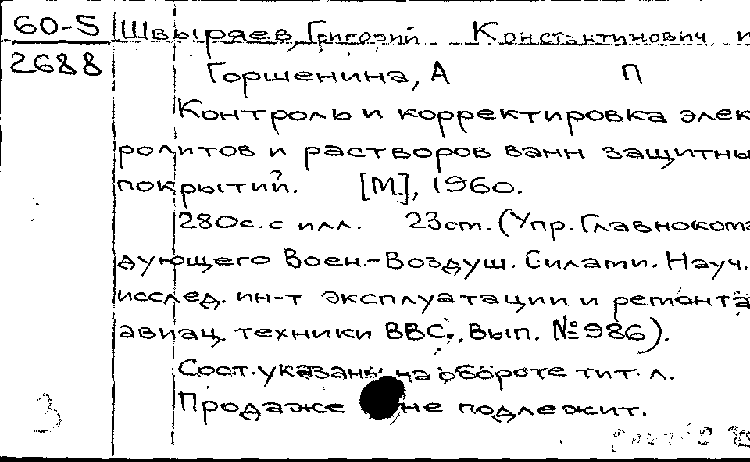 60-5 Швыряев, Григорий Константинович и
2688 Горшенина, А П
Контроль и корректировка элек
ролитов и растворов ванн защитны
покрытий. [М], 1960.
280с. с илл. 23см. (Упр. Главноком
дующего Воен.-Воздуш. Силами. Науч.
исслед. ин-т эксплуатации и ремонта
авиац. техники ВВС., Вып. № 986).
Сост. указаны на обороте тит. л.
Продаже не подлежит.
3